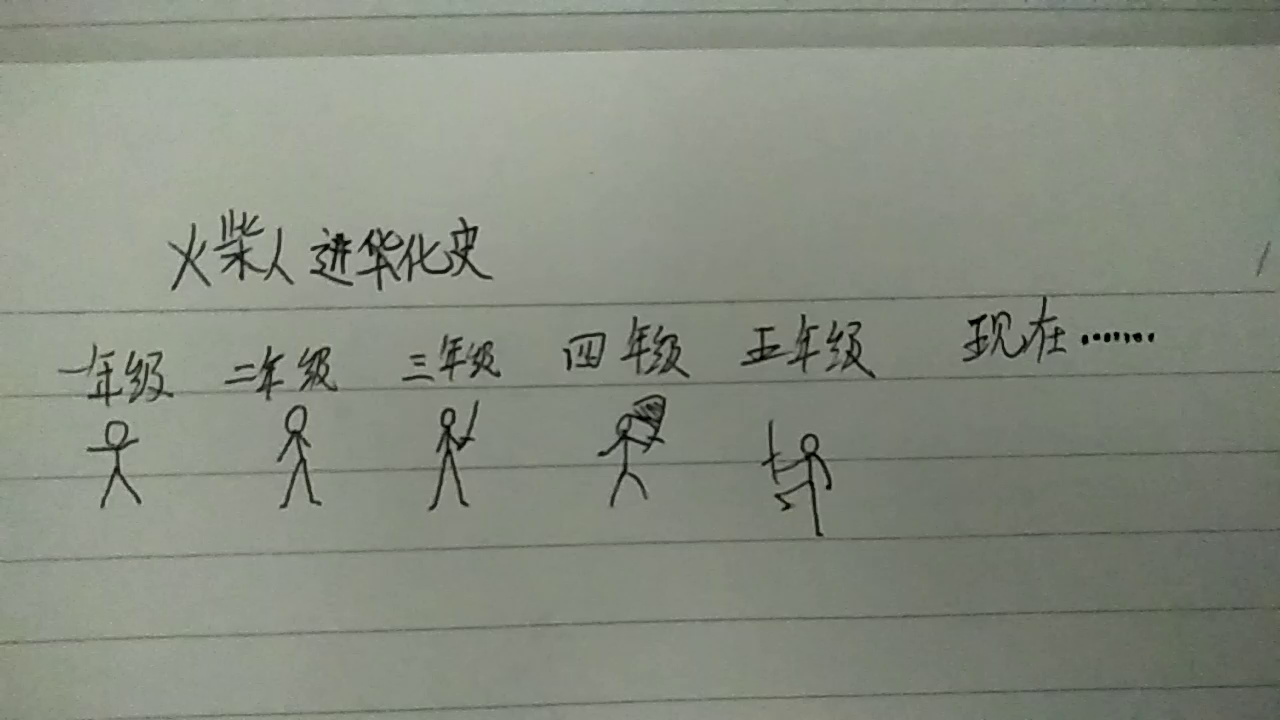 火柴人进华化史
一年级 二年级 三年级 四年级 五年级 现在.......